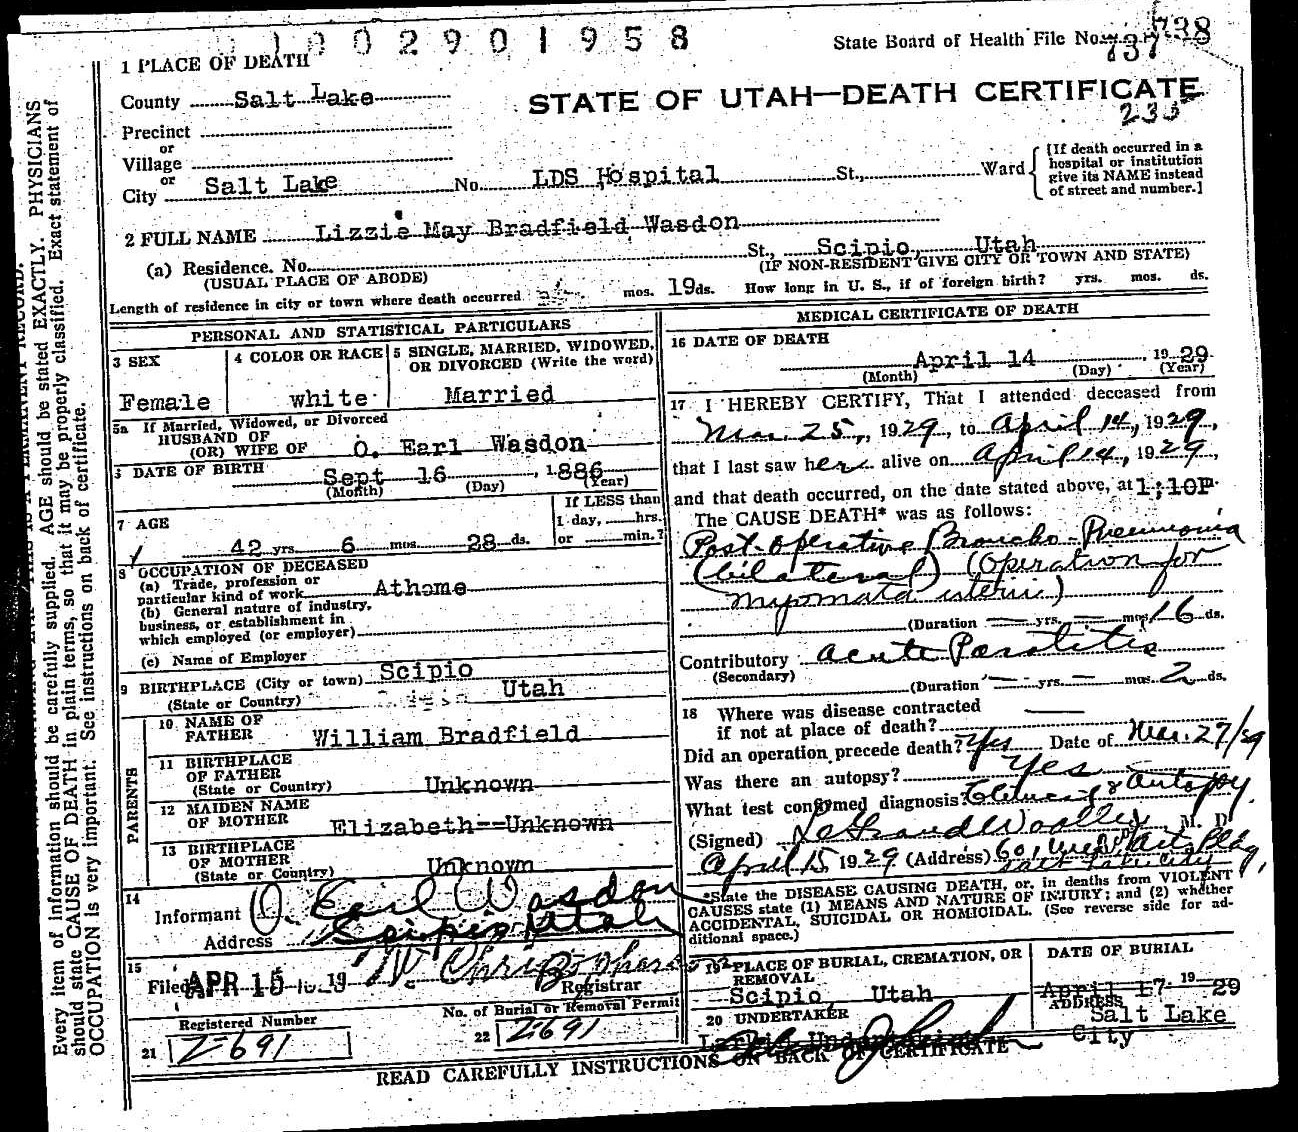 1002901958
State Board of Health File No. 738
737
1 PLACE OF DEATH
County Salt Lake
STATE OF UTAH—DEATH CERTIFICATE
235
Precinct
or
Village
or
City Salt Lake No. LDS Hospital St., Ward
[If death occurred in a
hospital or institution
give its NAME instead
of street and number.]
2 FULL NAME Lizzie May Bradfield Wasdon
(a) Residence. No. St., Scipio, Utah
(USUAL PLACE OF ABODE) (IF NON-RESIDENT GIVE CITY OR TOWN AND STATE)
Length of residence in city or town where death occurred mos. 19 ds. How long in U. S., if of foreign birth? yrs. mos. ds.
PERSONAL AND STATISTICAL PARTICULARS
3 SEX
Female
4 COLOR OR RACE
white
5 SINGLE, MARRIED, WIDOWED,
OR DIVORCED (Write the word)
Married
5a If Married, Widowed, or Divorced
HUSBAND OF
(OR) WIFE OF O. Earl Wasdon
DATE OF BIRTH Sept 16, 1886
(Month) (Day) (Year)
7 AGE
42 yrs. 6 mos. 28 ds.
If LESS than
1 day, hrs.
or min.?
8 OCCUPATION OF DECEASED
(a) Trade, profession or
particular kind of work Athome
(b) General nature of industry,
business, or establishment in
which employed (or employer)
(c) Name of Employer
9 BIRTHPLACE (City or town) Scipio
(State or Country) Utah
PARENTS
10 NAME OF
FATHER William Bradfield
11 BIRTHPLACE
OF FATHER
(State or Country) Unknown
12 MAIDEN NAME
OF MOTHER Elizabeth--Unknown
13 BIRTHPLACE
OF MOTHER
(State or Country) Unknown
14
Informant O. Earl Wasden
Address Scipio Utah
15
Filed APR 15 19
Registrar
Registered Number
21 2691
No. of Burial or Removal Permit
22 2691
MEDICAL CERTIFICATE OF DEATH
16 DATE OF DEATH
April 14, 1929
(Month) (Day) (Year)
17 I HEREBY CERTIFY, That I attended deceased from
Mar. 25, 1929, to April 14, 1929,
that I last saw her alive on April 14, 1929,
and that death occurred, on the date stated above, at 1;10P.
The CAUSE DEATH* was as follows:
Post-operative Broncho-Pneumonia
(bilateral) (Operation for
myomata uterii)
(Duration — yrs. — mos. 16 ds.
Contributory acute Parotitis
(Secondary)
(Duration — yrs. — mos. 2 ds.
18 Where was disease contracted
if not at place of death? —
Did an operation precede death? Yes Date of Mar. 27/29
Was there an autopsy? Yes
What test confirmed diagnosis? Clinical & autopsy.
(Signed) LeGrand Woolley, M. D.
April 15 1929 (Address) Bldg,
Salt Lake City
*State the DISEASE CAUSING DEATH, or, in deaths from VIOLENT
CAUSES state (1) MEANS AND NATURE OF INJURY; and (2) whether
ACCIDENTAL, SUICIDAL OR HOMICIDAL. (See reverse side for ad-
ditional space.)
19 PLACE OF BURIAL, CREMATION, OR
REMOVAL
Scipio, Utah
DATE OF BURIAL
April 17 1929
20 UNDERTAKER
ADDRESS
Salt Lake
City
READ CAREFULLY INSTRUCTIONS ON BACK OF CERTIFICATE
Every item of information should be carefully supplied. AGE should be stated EXACTLY. PHYSICIANS
should state CAUSE OF DEATH in plain terms, so that it may be properly classified. Exact statement of
OCCUPATION is very important. See instructions on back of certificate.